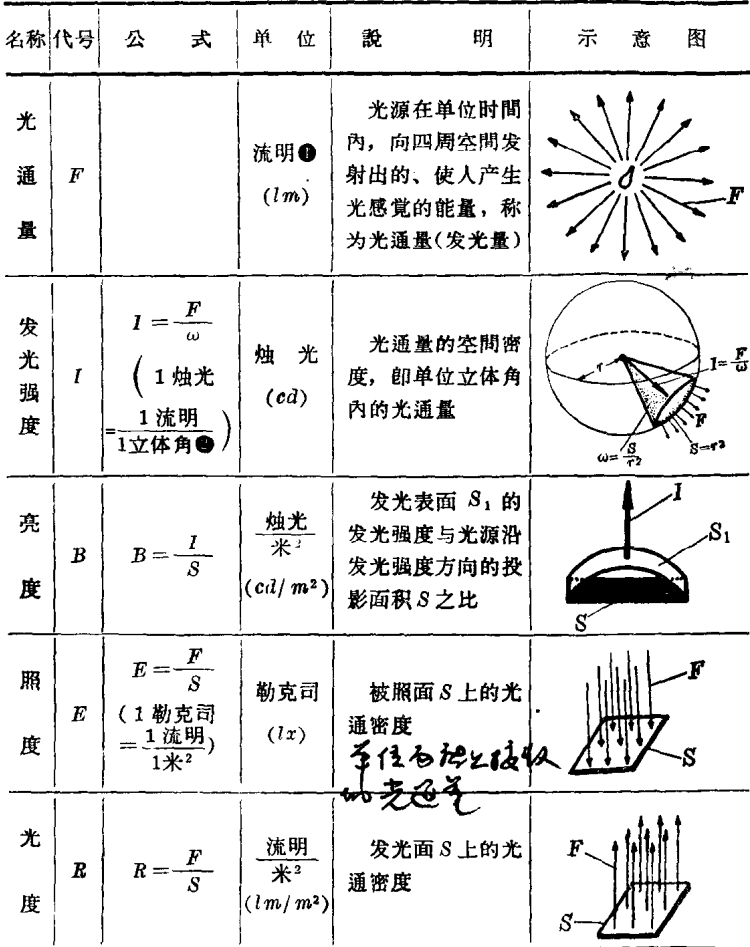 名称 代号 公 式 单 位 說 明 示 意 图
光通量
F
流明❶
(lm)
光源在单位时間
內，向四周空間发
射出的、使人产生
光感覚的能量，称
为光通量(发光量)
F
发光强度
I
I = F/ω
( 1 烛光
= 1 流明/1立体角❷ )
烛 光
(cd)
光通量的空間密
度，卽单位立体角
內的光通量
r
I = F/ω
F
S=r²
ω = S/r²
亮度
B
B = I/S
烛光/米²
(cd/m²)
发光表面 S₁ 的
发光强度与光源沿
发光强度方向的投
影面积 S 之比
I
S₁
S
照度
E
E = F/S
( 1 勒克司
= 1 流明/1米² )
勒克司
(lx)
被照面 S 上的光
通密度
单位面积上接收
的光通量
F
S
光度
R
R = F/S
流明/米²
(lm/m²)
发光面 S 上的光
通密度
F
S